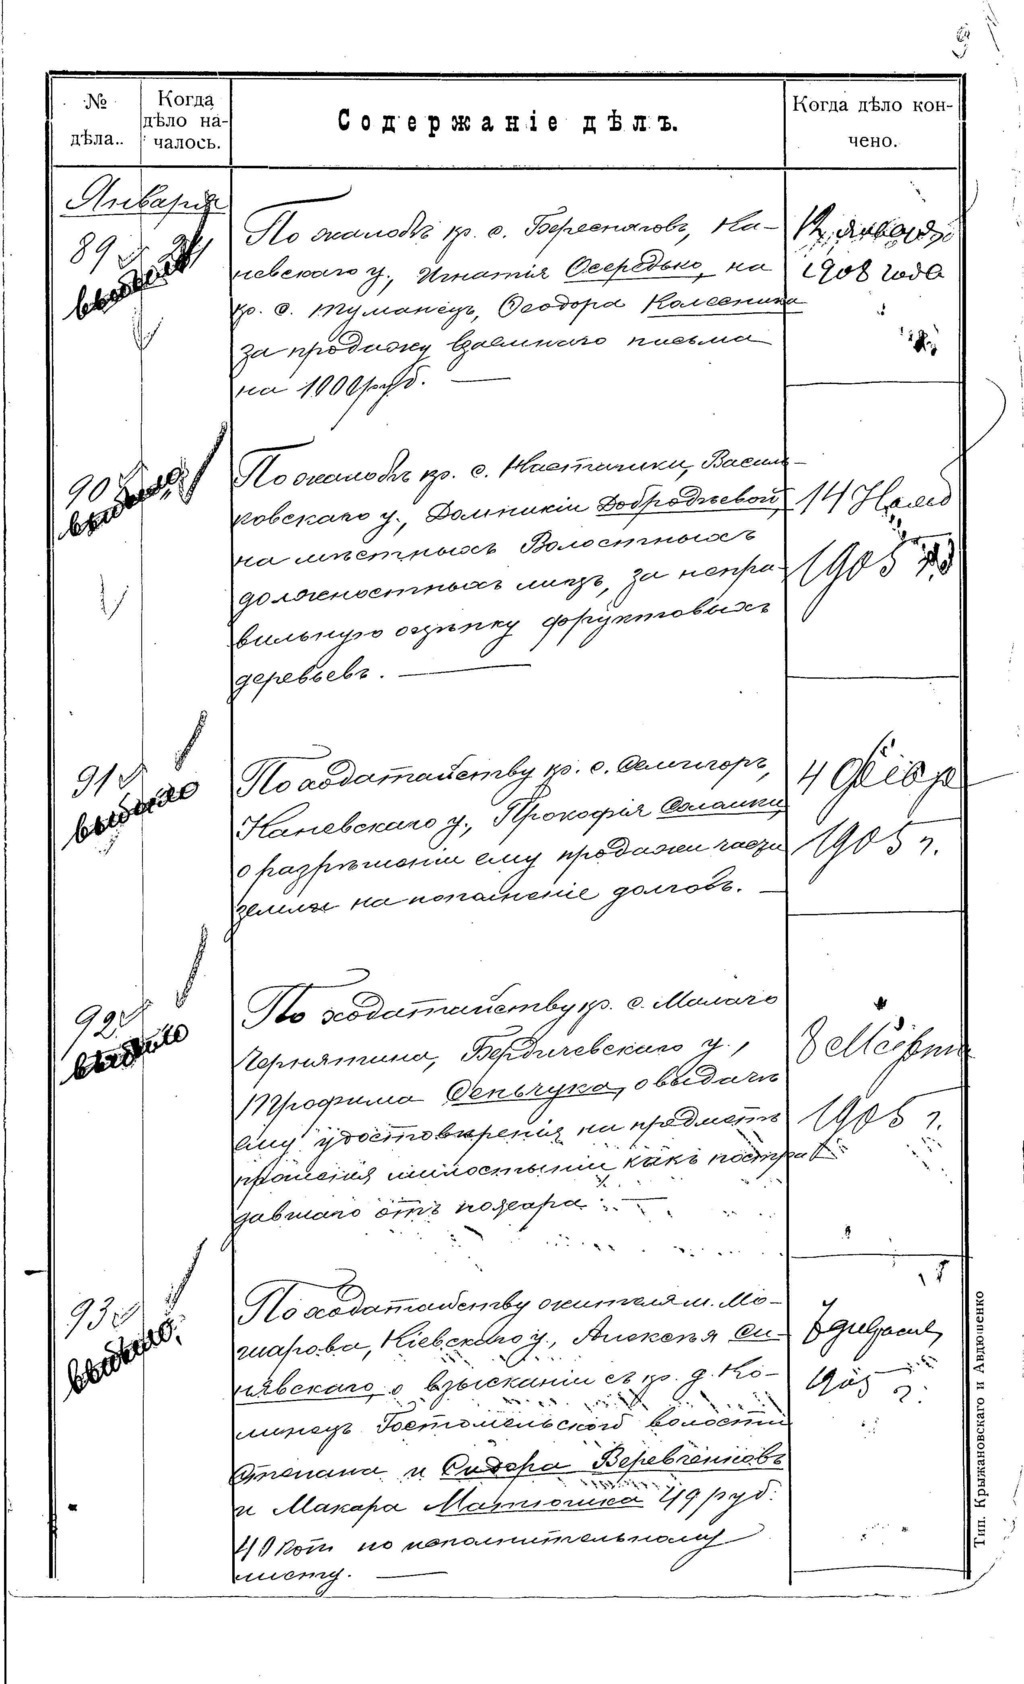 9
№ дѣла..
Когда дѣло началось.
Содержаніе дѣлъ.
Когда дѣло кончено.
Января
89
24
выбыло
По жалобѣ кр. с. Бересняговъ, Ка-
невскаго у., Игнатія Осередько, на
кр. с. Туманецъ, Ѳеодора Колесника
за продажу взаемнаго письма
на 1000 руб.
12 января
1908 года
90
выбыло
По жалобѣ кр. с. Насташки, Василь-
ковскаго у., Домникіи Добродѣевой,
на мѣстныхъ Волостныхъ
должностныхъ лицъ, за непра-
вильную оцѣнку фруктовыхъ
деревьевъ.
14 Нояб
1905 г.
91
выбыло
По ходатайству кр. с. Семигоръ,
Каневскаго у., Прокофія Соламки,
о разрѣшеніи ему продажи части
земли на пополненіе долговъ.
4 Февр
1905 г.
92
выбыло
По ходатайству кр. с. Малаго
Чернятина, Бердичевскаго у.,
Трофима Сеньчука, о выдачѣ
ему удостовѣренія на предметъ
прошенія милостыни какъ постра
давшаго отъ пожара.
8 Марта
1905 г.
93
выбыло
По ходатайству жителя м. Мо-
шарова, Кіевскаго у., Алексѣя Си-
нявскаго, о взысканіи съ кр. д. Ко-
Гостомельской волости
Степана и Сидора Веревченковъ
и Макара Матюшка 49 руб.
40 коп. по исполнительному
листу.
7
1905 г.
Тип. Крыжановскаго и Авдюшенко